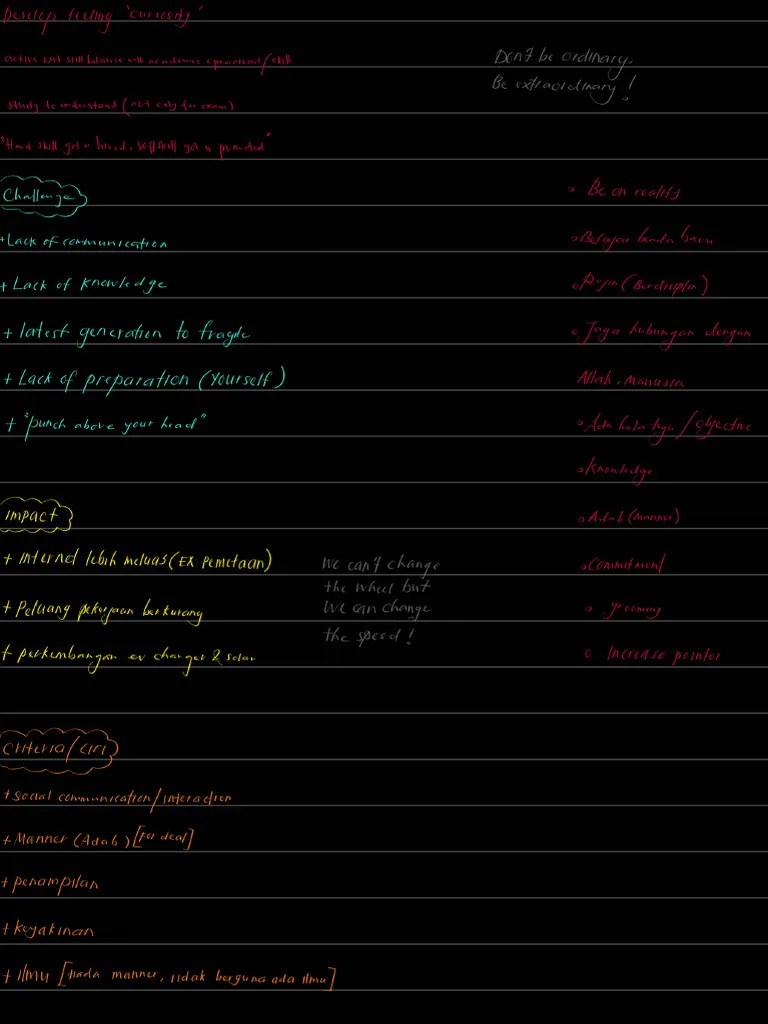 Develop feeling 'curiosity'
active but still balance with academic & practical/skill
study to understand (not only for exam)
"Hard skill get u hired, softskill get u promoted"
Don't be ordinary.
Be extraordinary!
Challenge
+ Lack of communication
+ Lack of knowledge
+ latest generation to fragile
+ Lack of preparation (yourself)
+ "punch above your head"
impact
+ internet lebih meluas (EX pemetaan)
+ Peluang pekerjaan berkurang
+ perkembangan ev charger & solar
We can't change
the wheel but
we can change
the speed!
Criteria/ciri
+ social communication/interaction
+ Manner (Adab) [for deal]
+ penampilan
+ keyakinan
+ Ilmu [tiada manner, tidak berguna ada ilmu]
o Be on reality
o Belajar benda baru
o Rajin (Berdisiplin)
o Jaga hubungan dengan
Allah, manusia
o Ada hala tuju / objective
o knowledge
o Adab (manner)
o Commitment
o grooming
o increase pointer